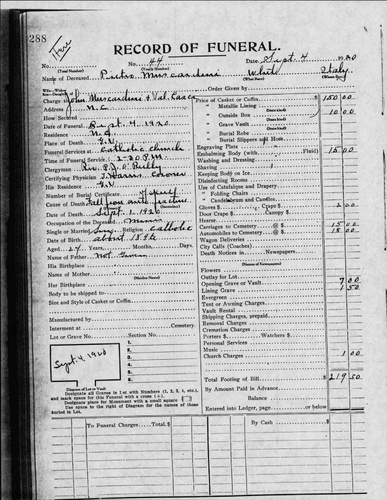 288
RECORD OF FUNERAL.
No. 44 Date Sept. 4 1920
(Total Number) (Yearly Number)
Name of Deceased Pietro White Italy
Order Given by
Charge to John & Val.
N.C.
How Secured
Date of Funeral Sept. 4 1920
Residence N.C.
Place of Death
Funeral Services at Catholic Church
Time of Funeral Service 2-30 P.M.
Clergyman
Certifying Physician Harris Coroner
His Residence
Number of Burial Certificate
Cause of Death
Date of Death Sept. 1, 1920
Occupation of Deceased Miner
Single or Married Religion Catholic
Date of Birth about 1896
Aged 24 Years, Months, Days
Name of Father Not Given
His Birthplace
Name of Mother
Her Birthplace
Body to be shipped to
Size and Style of Casket or Coffin
Manufactured by
Interment at Cemetery
Lot or Grave No. Section No.
1.
2.
3.
4.
5.
6.
Sept. 4, 1920
Diagram of Lot or Vault
Designate all Graves in Lot with Numbers (1, 2, 3, 4, etc.)
and mark space for this Funeral with a cross (+).
Designate place for Monument with a small square
Use space to right of Diagram for the names of those
buried in Lot.
Price of Casket or Coffin 150 00
Metallic Lining
" Outside Box 10 00
" Grave Vault
" Burial Robe
" Burial Slippers and Hose
Engraving Plate
Embalming Body (with Fluid) 15 00
Washing and Dressing
Shaving
Keeping Body on Ice
Disinfecting Rooms
Use of Catafalque and Drapery
" Folding Chairs
" Candelabrum and Candles
Gloves $ Crape $ 2 00
Door Crape $ Canopy
Hearse
Carriages to Cemetery @ $ 15 00
Automobiles to Cemetery @ $ 18 00
Wagon Deliveries
City Calls to Cemetery
Death Notices in Newspapers
Flowers
Outlay for Lot
Opening Grave or Vault 7 00
Lining Grave 1 50
Evergreen
Tent or Awning Charges
Vault Rental
Shipping Charges, prepaid
Removal Charges
Cremation Charges
Porters $ Watchers $
Personal Services
Music
Church Charges 1 00
Total Footing of Bill $219 50
By Amount Paid in Advance
Balance
Entered into Ledger, page or below
To Funeral Charges - Total, $
By Cash $